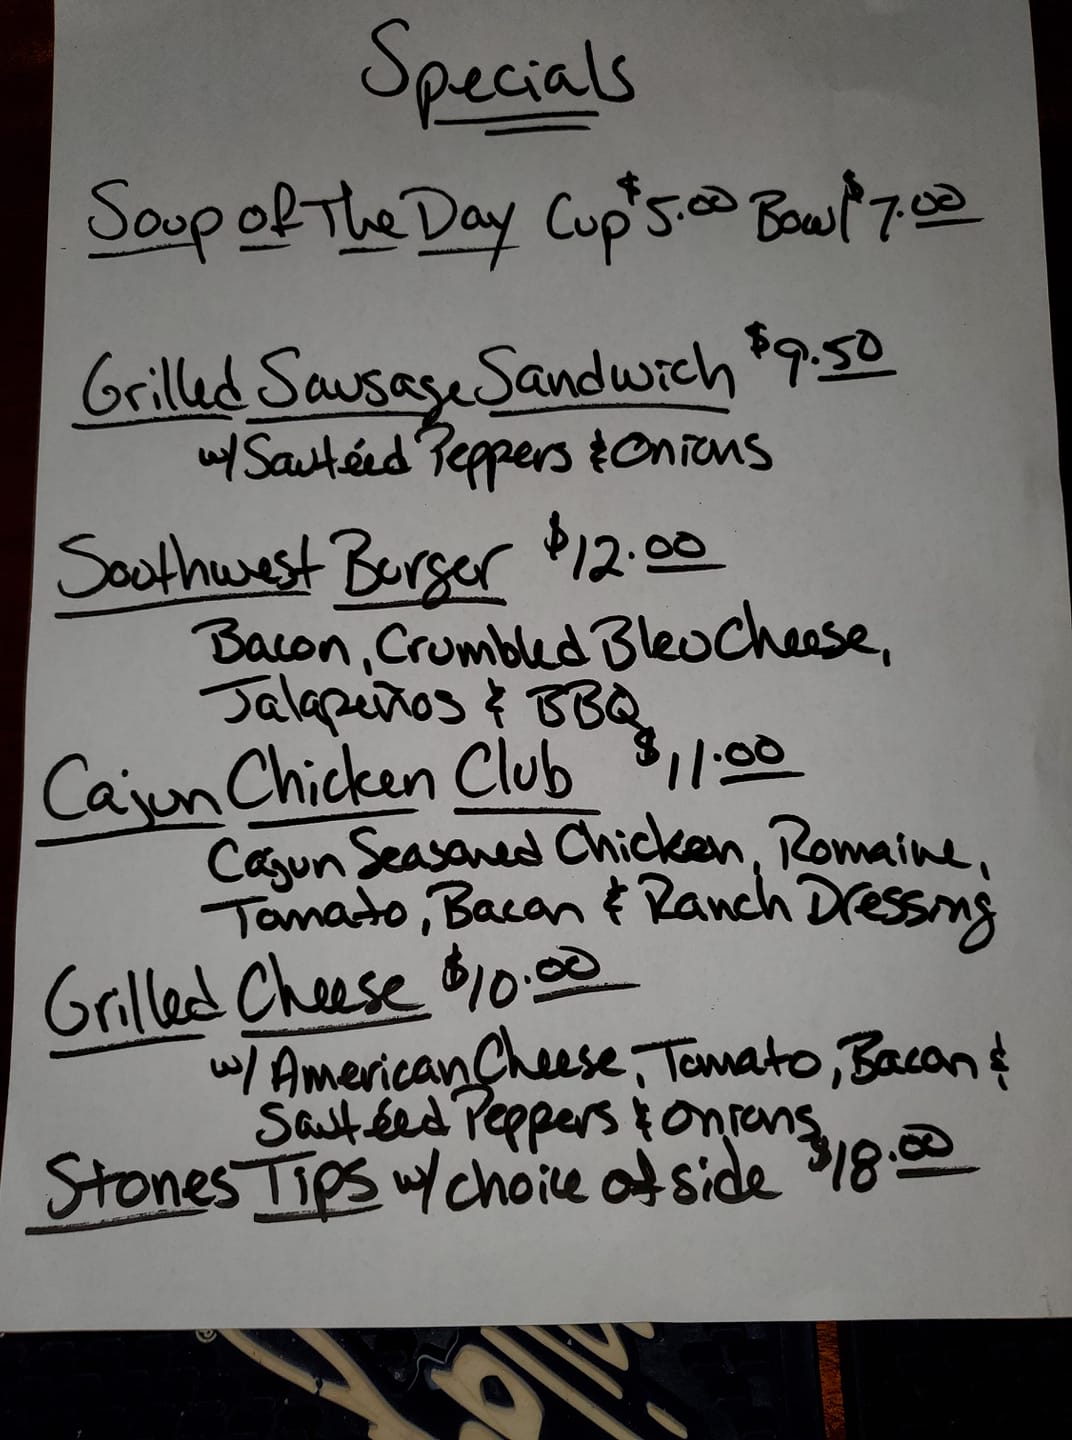 Specials
Soup of The Day Cup $5.00 Bowl $7.00
Grilled Sausage Sandwich $9.50
w/ Sautéed Peppers & Onions
Southwest Burger $12.00
Bacon, Crumbled Bleu Cheese,
Jalapeños & BBQ
Cajun Chicken Club $11.00
Cajun Seasoned Chicken, Romaine,
Tomato, Bacon & Ranch Dressing
Grilled Cheese $10.00
w/ American Cheese, Tomato, Bacon &
Sautéed Peppers & Onions
Stones Tips w/ choice of side $18.00